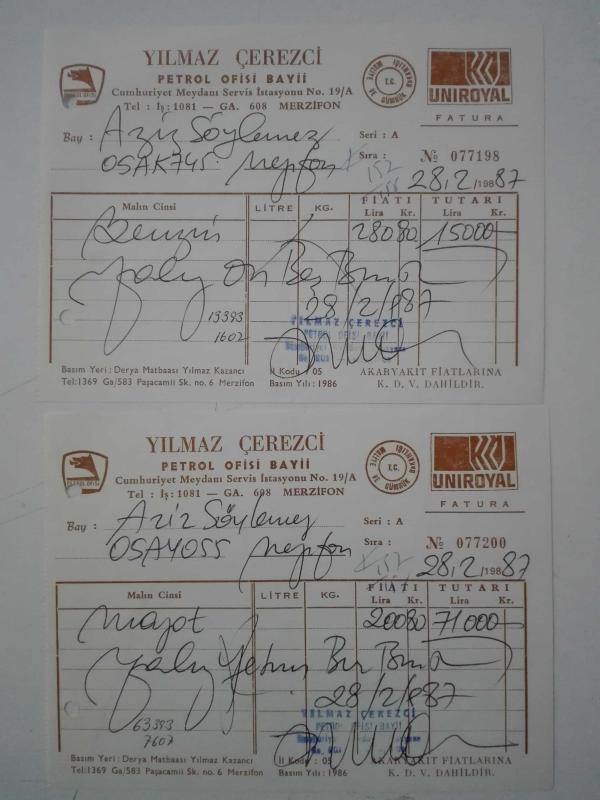 YILMAZ ÇEREZCİ
PETROL OFİSİ BAYİİ
Cumhuriyet Meydanı Servis İstasyonu No. 19/A
Tel : İş: 1081 — GA. 608 MERZİFON
PETROL OFİSİ
MALİYE VE GÜMRÜK BAKANLIĞI
T.C.
UNIROYAL
FATURA
Bay : Aziz Söylemez
Seri : A
05AK745. Merzifon
Sıra : № 077198
28/2/1987
Malın Cinsi LİTRE KG. FİATI TUTARI
Lira Kr. Lira Kr.
Benzin 280 80 15000
Yalnız On Beş Bin
28/2/987
13393
1607
YILMAZ ÇEREZCİ
PETROL OFİSİ BAYİİ
Basım Yeri : Derya Matbaası Yılmaz Kazancı
Tel:1369 Ga/583 Paşacamii Sk. no. 6 Merzifon
İl Kodu : 05
Basım Yılı : 1986
AKARYAKIT FİATLARINA
K. D. V. DAHİLDİR.
YILMAZ ÇEREZCİ
PETROL OFİSİ BAYİİ
Cumhuriyet Meydanı Servis İstasyonu No. 19/A
Tel : İş: 1081 — GA. 608 MERZİFON
PETROL OFİSİ
MALİYE VE GÜMRÜK BAKANLIĞI
T.C.
UNIROYAL
FATURA
Bay : Aziz Söylemez
Seri : A
05AY055 Merzifon
Sıra : № 077200
28/2/1987
Malın Cinsi LİTRE KG. FİATI TUTARI
Lira Kr. Lira Kr.
Mazot 200 80 71000
Yalnız Yetmiş Bir Bin
28/2/987
63393
7607
YILMAZ ÇEREZCİ
PETROL OFİSİ BAYİİ
Basım Yeri : Derya Matbaası Yılmaz Kazancı
Tel:1369 Ga/583 Paşacamii Sk. no. 6 Merzifon
İl Kodu : 05
Basım Yılı : 1986
AKARYAKIT FİATLARINA
K. D. V. DAHİLDİR.